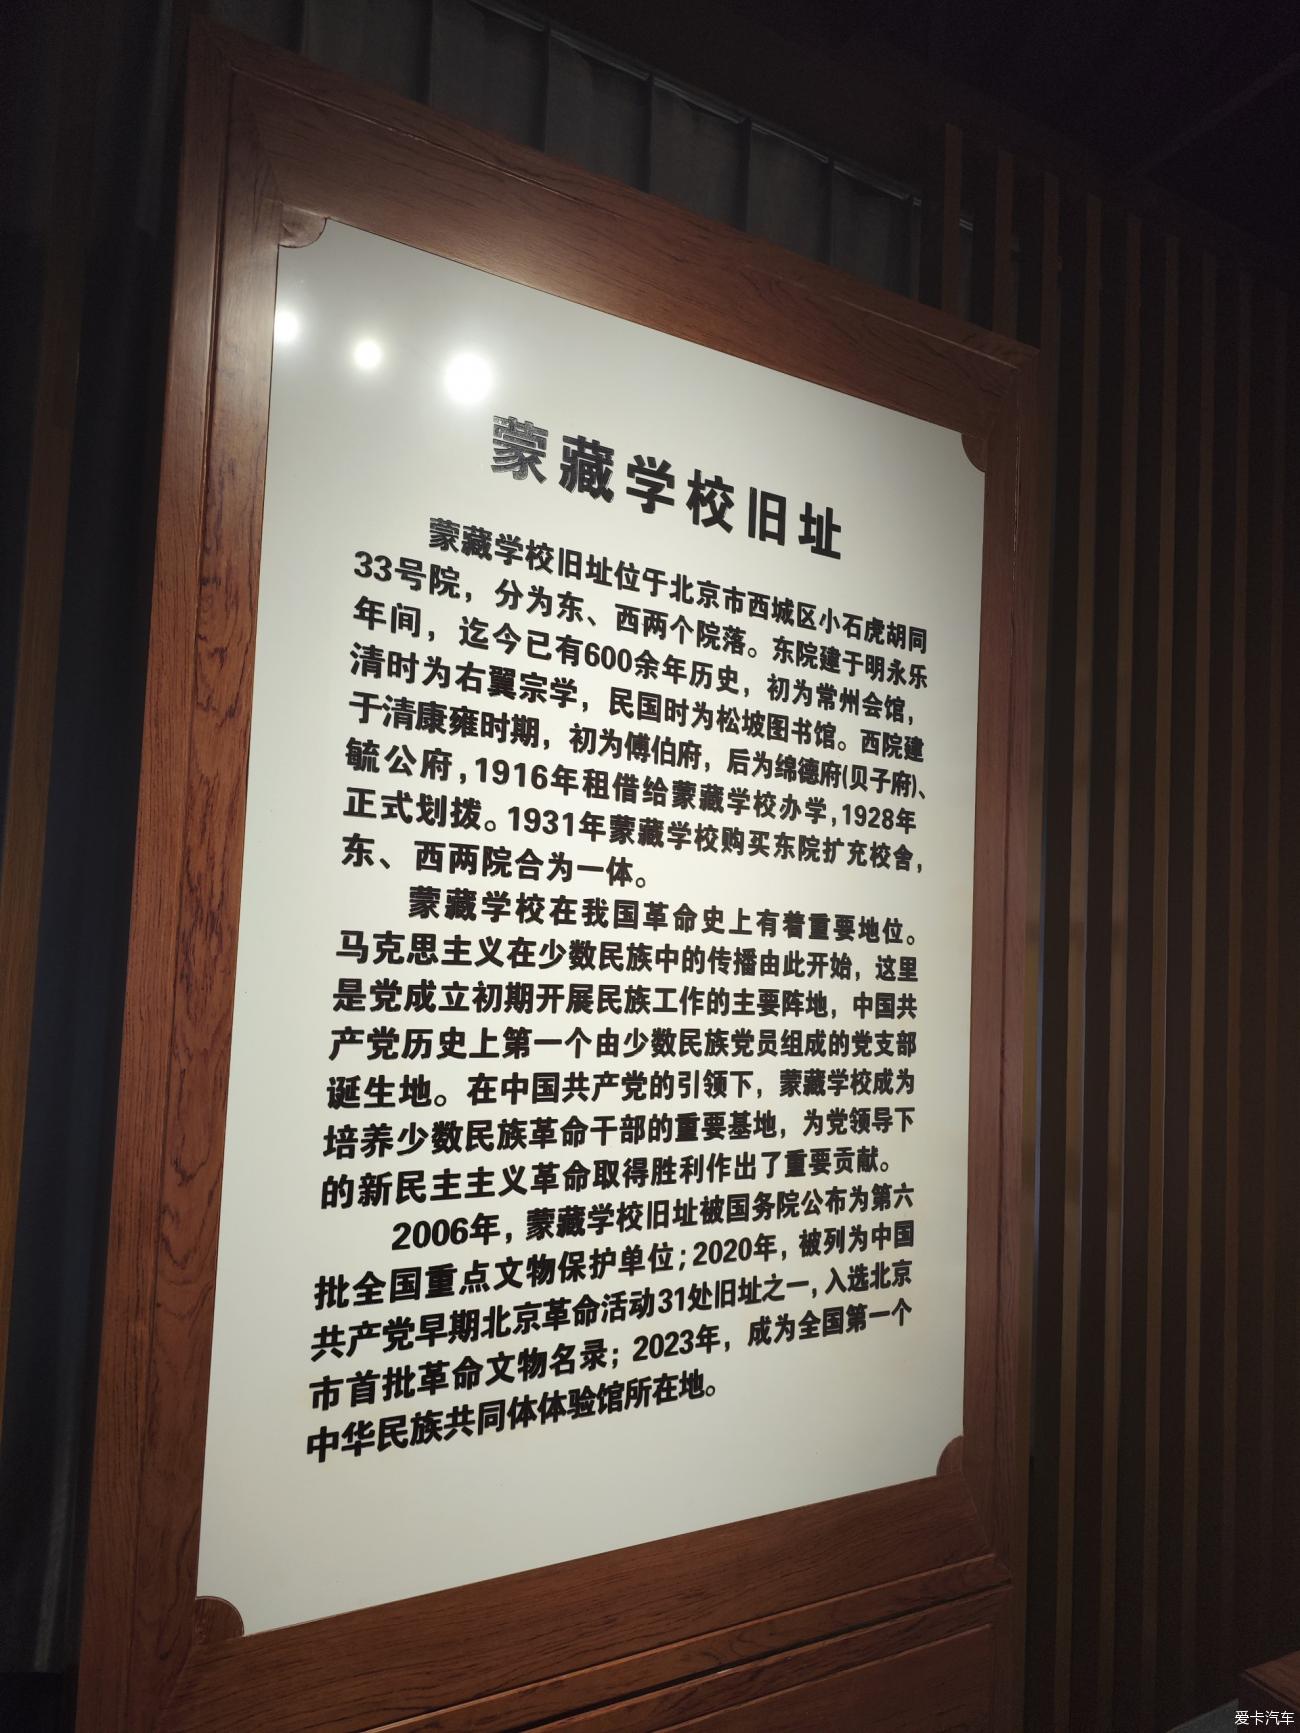 蒙藏学校旧址
蒙藏学校旧址位于北京市西城区小石虎胡同
33号院，分为东、西两个院落。东院建于明永乐
年间，迄今已有600余年历史，初为常州会馆，
清时为右翼宗学，民国时为松坡图书馆。西院建
于清康雍时期，初为傅伯府，后为绵德府(贝子府)、
毓公府，1916年租借给蒙藏学校办学，1928年
正式划拨。1931年蒙藏学校购买东院扩充校舍，
东、西两院合为一体。
蒙藏学校在我国革命史上有着重要地位。
马克思主义在少数民族中的传播由此开始，这里
是党成立初期开展民族工作的主要阵地，中国共
产党历史上第一个由少数民族党员组成的党支部
诞生地。在中国共产党的引领下，蒙藏学校成为
培养少数民族革命干部的重要基地，为党领导下
的新民主主义革命取得胜利作出了重要贡献。
2006年，蒙藏学校旧址被国务院公布为第六
批全国重点文物保护单位；2020年，被列为中国
共产党早期北京革命活动31处旧址之一，入选北京
市首批革命文物名录；2023年，成为全国第一个
中华民族共同体体验馆所在地。
爱卡汽车